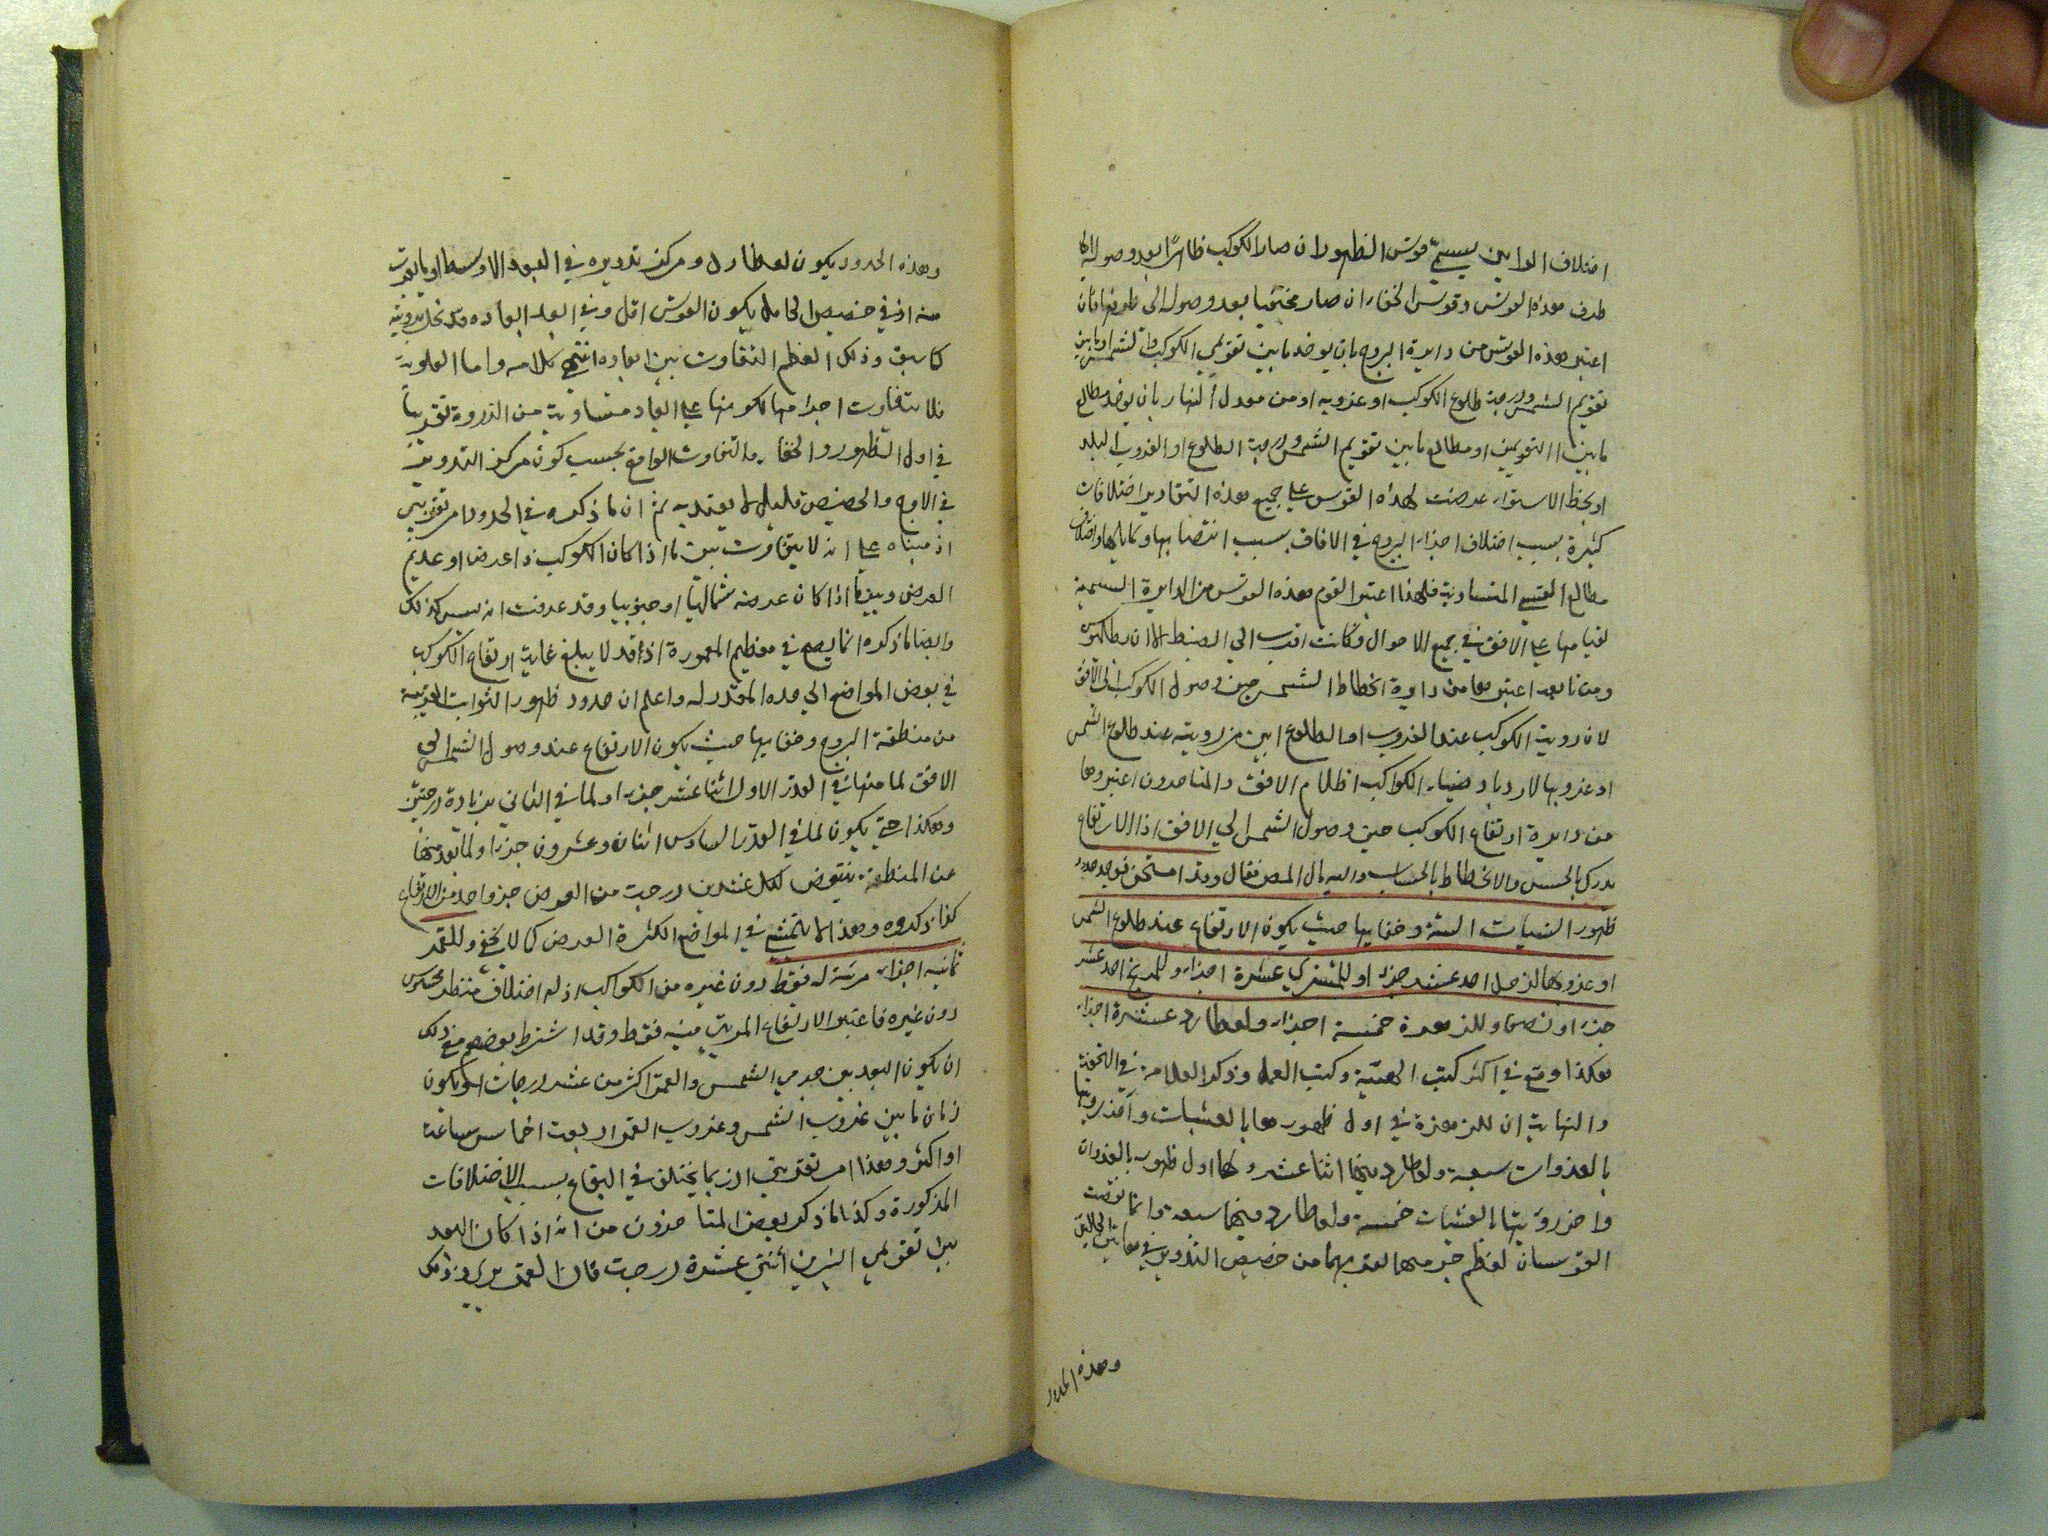 اختلاف الرايين يسمى قوس الظهور ان صار الكوكب ظاهرا بعد وصوله الى
طرف هذه القوس وقوس الخفاء ان صار مختفيا بعد وصوله الى طرفها فان
اعتبر هذه القوس من دايرة البروج بان يوخذ ما بين تقويمي الكوكب والشمس او ما بين
تقويم الشمس ودرجة طلوع الكوكب او غروبه او من معدل النهار بان يوخذ مطالع
ما بين التقويمين او مطالع ما بين تقويم الشمس ودرجة الطلوع او الغروب بالبلد
او بخط الاستواء عرضت لهذه القوس على جميع هذه التقادير اختلافات
كثيرة بسبب اختلاف اجزاء البروج في الافاق بسبب انتصابها وتمايلها واختلاف
مطالع القسي المتساوية فلهذا اعتبر القوم هذه القوس من الدايرة السمتية
لقيامها على الافق في جميع الاحوال فكانت اقرب الى الضبط الا ان بطلميوس
ومن تابعه اعتبرها من دايرة انحطاط الشمس حين وصول الكوكب الى الافق
لان روية الكوكب عند الغروب او الطلوع ابين من رويته عند طلوع الشمس
او غروبها لازدياد ضياء الكواكب اظلام الافق والمتاخرون اعتبروها
من دايرة ارتفاع الكوكب حين وصول الشمس الى الافق اذ الارتفاع
يدرك بالحس والانحطاط بالحساب واليه مال المص فقال وقد امتحن فوجد حدود
ظهور السيارات الستة وخفايها حيث يكون الارتفاع عند طلوع الشمس
او غروبها لزحل احد عشر جزءا وللمشتري عشرة اجزاء وللمريخ احد عشر
جزءا ونصفا وللزهرة خمسة اجزاء ولعطارد عشرة اجزاء
هكذا وقع في اكثر كتب الهيئة وكتب العمل وذكر العلامة في التحفة
والنهاية ان للزهرة في اول ظهورها بالعشيات وآخر رويتها
بالغدوات سبعة ولعطارد فيهما اثنا عشر ولها اول ظهوره بالغدوات
واخر رويتها بالعشيات خمسة ولعطارد فيهما سبعة وانما نقصت
القوسان لعظم جرميهما لقربهما من حضيض التدوير في هاتين الحالتين
وهذه الحدود
وهذه الحدود يكون لعطارد ومركز تدويره في البعد الاوسط او ما يقرب
منه اذ في حضيض الحامل يكون القوس اقل وفي ابعد ابعاده
كما سبق وذلك لعظم التفاوت بين ابعاده انتهى كلامه واما العلوية
فلا يتفاوت اجرامها لكونها على ابعاد متساوية من الذروة تقريبا
في اول الظهور والخفاء والتفاوت الواقع بحسب كون مركز التدوير
في الاوج والحضيض قليل لا يعتد به ثم ان ما ذكره في الحدود امر تقريبي
اذ مبناه على انه لا يتفاوت بين ما اذا كان الكوكب ذا عرض او عديم
العرض وبين ما اذا كان عرضه شماليا او جنوبيا وقد عرفت انه ليس كذلك
وايضا ما ذكره انما يصح في معظم المعمورة اذ قد لا يبلغ غاية ارتفاع الكوكب
في بعض المواضع الى حده المقدر له واعلم ان حدود ظهور الثوابت القريبة
من منطقة البروج وخفايها حيث يكون الارتفاع عند وصول الشمس الى
الافق لما منها في القدر الاول اثنا عشر جزءا ولما في الثاني بزيادة درجتين
وهكذا حتى يكون لما في القدر السادس اثنان وعشرون جزءا ولما بعد منها
عن المنطقة ينقص لكل عشرين درجة من العرض جزء واحد من الارتفاع
كذا ذكروه وهذا لا يتمشى في المواضع الكثيرة العرض كما لا يخفى وللقمر
ثمانية اجزاء مرئية له فقط دون غيره من الكواكب اذ له اختلاف منظر محسوس
دون غيره فاعتبر الارتفاع المرئي فيه فقط وقد اشترط بعضهم مع ذلك
ان يكون البعد بين جرمي الشمس والقمر اكثر من عشر درجات او يكون
زمان ما بين غروب الشمس وغروب القمر اربعة اخماس ساعة
او اكثر وهذا امر تقريبي اذ ربما يختلف في البقاع بسبب الاختلافات
المذكورة وكذا ما ذكر بعض المتاخرون من انه اذا كان البعد
بين تقويمي النيرين اثنتي عشرة درجة فان القمر يرى وذلك